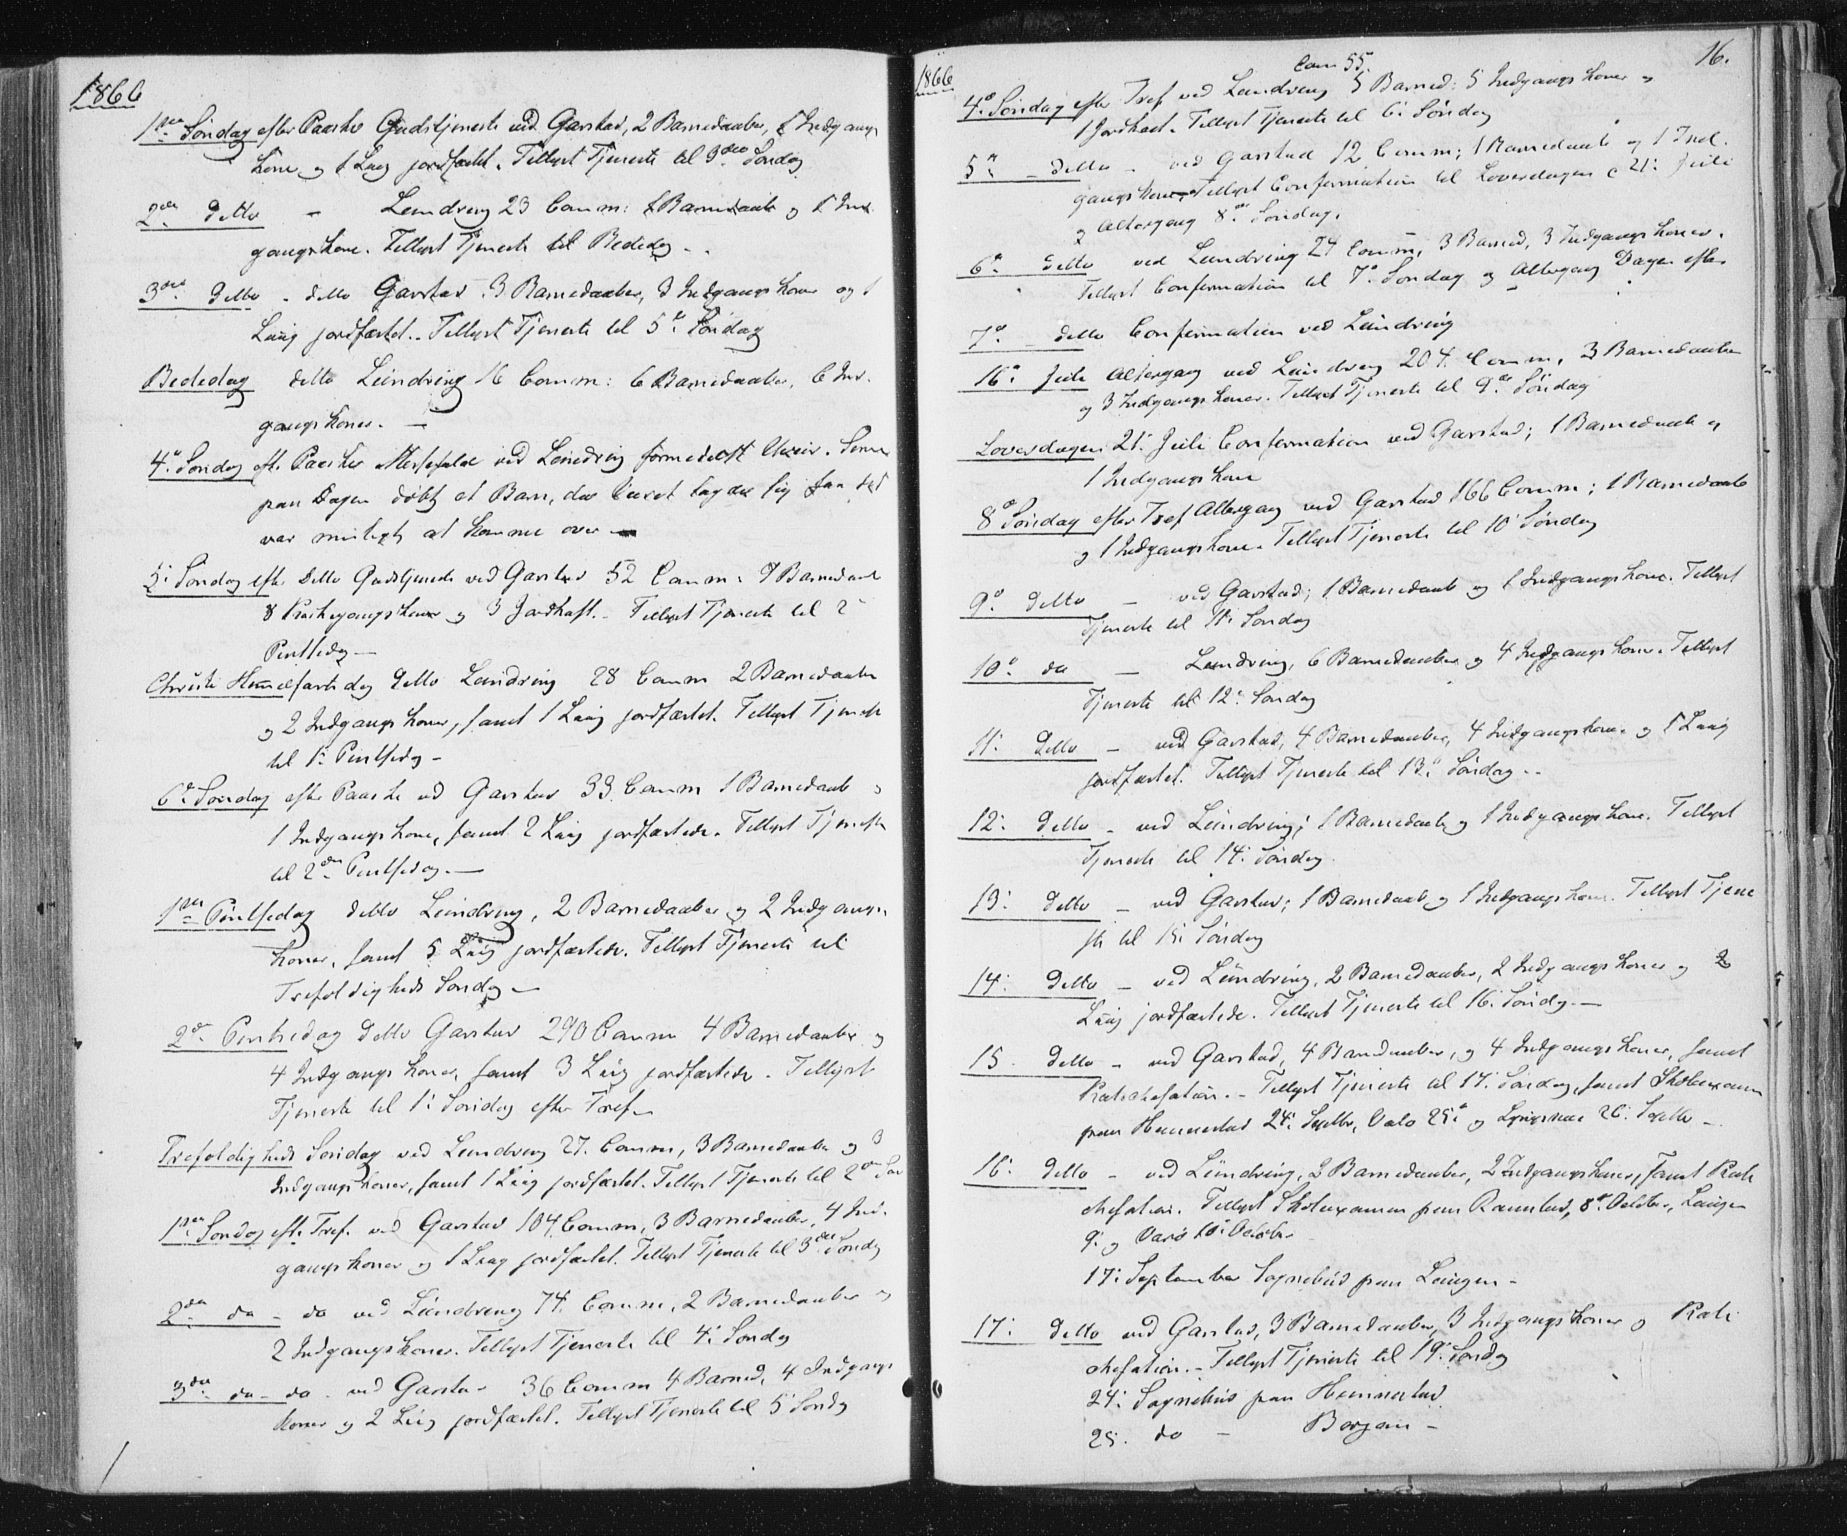 1866
1ste Søndag efter Paaske Gudstjeneste ved Garstad, 2 Barnedaaber, 1 Indgangs
kone og 1 Liig jordfæstet. Tillyst Tjeneste til 3die Søndag
2den Ditto - Leundring 23 Comm: 1 Barnedaab og 1 Ind
gangskone. Tillyst Tjeneste til Bededag -
3die Ditto - ditto Garstad 3 Barnedaaber, 3 Indgangskoner og 1
Liig jordfæstet. Tillyst Tjeneste til 5te Søndag
Bededag ditto Leundring 16 Comm: 6 Barnedaaber, 6 Ind-
gangskoner. -
4de Søndag eft. Paaske Messefald ved Leundring formedelst Uveir. Senere
paa Dagen døbt et Barn, der
var muligt at komme over -
5te Søndag eft. Ditto Gudstjeneste ved Garstad 52 Comm: 9 Barnedaab
8 Kirkegangskoner og 3 Jordkast. - Tillyst Tjeneste til 2
Pintsedag -
Christi Himmelfartsdag Ditto Leundring 28 Comm 2 Barnedaaber
og 2 Indgangskoner, samt 1 Liig jordfæstet. Tillyst Tjeneste
til 1ste Pintsedag -
6te Søndag efter Paaske ved Garstad 33 Comm 1 Barnedaab og
1 Indgangskone, samt 2 Liig jordfæstede. Tillyst Tjeneste
til 2den Pintsedag. -
1ste Pintsedag ditto Leundring, 2 Barnedaaber og 2 Indgangs
koner, samt 5 Liig jordfæstede. Tillyst Tjeneste til
Trefoldigheds Søndag -
2den Pintsedag Ditto Garstad 290 Comm 4 Barnedaaber og
4 Indgangskoner, samt 3 Liig jordfæstede. Tillyst
Tjeneste til 1ste Søndag efter Tref.
Trefoldigheds Søndag ved Leundring 27 Comm, 3 Barnedaaber og 3
Indgangskoner, samt 1 Liig jordfæstet. Tillyst Tjeneste til 2den Søn
1ste Søndag eft. Tref. ved Garstad 104 Comm, 3 Barnedaaber, 4 Ind-
gangskoner og 1 Liig jordfæstet. Tillyst Tjeneste til 3die Søndag
2den do - do ved Leundring 74 Comm, 2 Barnedaaber og
2 Indgangskoner. Tillyst Tjeneste til 4de Søndag
3die do - do - ved Garstad 36 Comm 4 Barned, 4 Indgangs
koner og 2 Liig jordfæstet. Tillyst Tjeneste til 5te Søndag
1866
16.
Com 55.
4de Søndag efter Tref ved Leundring 5 Barned: 5 Indgangskoner og
1 Jordkast. Tillyst Tjeneste til 6te Søndag
5te - ditto - ved Garstad 12 Comm; 1 Barnedaab og 1 Ind-
gangskone. Tillyst Confirmation til Løverdagen d 21: Juli
og Altergang 8de Søndag.
6te ditto ved Leundring 24 Comm, 3 Barned, 3 Indgangskoner.
Tillyst Confirmation til 7de Søndag og Altergang Dagen efter
7de - ditto Confirmation ved Leundring
16de Juli Altergang ved Leundring 204 Comm, 3 Barnedaaber
og 3 Indgangskoner. Tillyst Tjeneste til 9de Søndag
Løverdagen 21: Juli Confirmation ved Garstad; 1 Barnedaab og
1 Indgangskone
8de Søndag efter Tref Altergang ved Garstad 166 Comm; 1 Barnedaab
og 1 Indgangskone. Tillyst Tjeneste til 10: Søndag
9de Ditto - ved Garstad; 1 Barnedaab og 1 Indgangskone. Tillyst
Tjeneste til 11: Søndag
10de do - Leundring, 6 Barnedaaber og 4 Indgangskoner. Tillyst
Tjeneste til 12: Søndag
11: Ditto - ved Garstad, 4 Barnedaaber, 4 Indgangskoner og 1 Liig
jordfæstet. Tillyst Tjeneste til 13: Søndag -
12: Ditto - ved Leundring; 1 Barnedaab og 1 Indgangskone. Tillyst
Tjeneste til 14: Søndag.
13: Ditto - ved Garstad; 1 Barnedaab og 1 Indgangskone. Tillyst Tjene
ste til 15: Søndag
14: Ditto - ved Leundring, 2 Barnedaaber, 2 Indgangskoner og 2
Liig jordfæstede. Tillyst Tjeneste til 16: Søndag. -
15. Ditto - ved Garstad, 4 Barnedaaber, og 4 Indgangskoner, samt
Katechisation. - Tillyst Tjeneste til 17: Søndag, samt Skolexamen
paa Hunnestad 24: Septbr, Valø 25: og 26: Septbr -
16: Ditto - ved Leundring, 2 Barnedaaber, 2 Indgangskoner, samt Kate
chisation. Tillyst Skolexamen paa Ramstad, 8de Octbr.,
9: og 10: October
17: September Sognebud paa
17: Ditto ved Garstad, 3 Barnedaaber, 3 Indgangskoner og Kate
chisation. - Tillyst Tjeneste til 19: Søndag
24: Sognebud paa Hunnestad
25. do - Borgan -